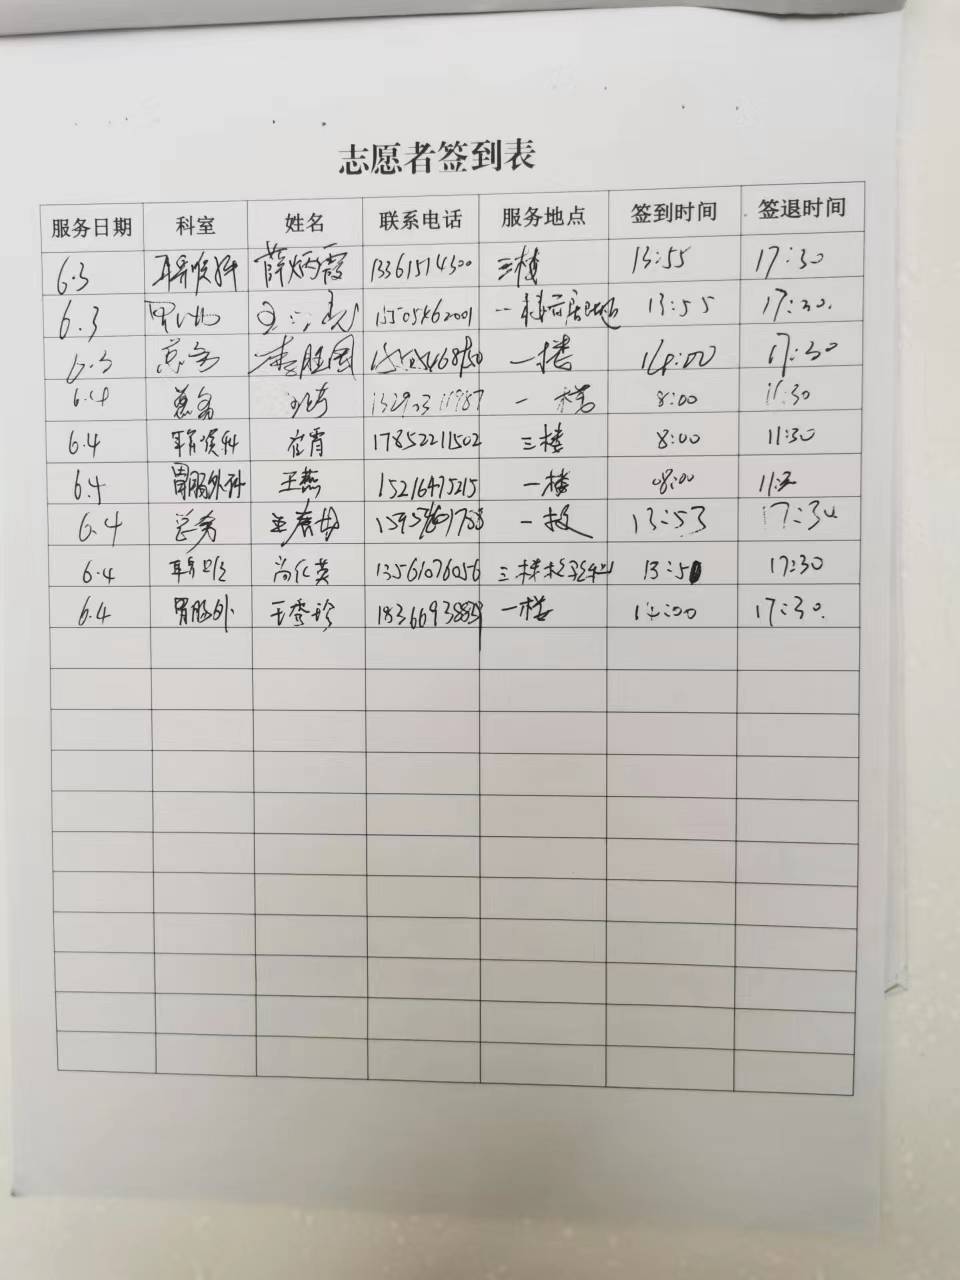 志愿者签到表
服务日期 科室 姓名 联系电话 服务地点 签到时间 签退时间
6.3 耳鼻喉科 薛炳霞 13361514300 三楼 13:55 17:30
6.3 一楼 13:55 17:30.
6.3 总务 李胜国 一楼 14:00 17:30
6.4 总务 一楼 8:00 11:30
6.4 耳鼻喉科 崔霄 17852211502 三楼 8:00 11:30
6.4 胃肠外科 王燕 15216475215 一楼 08:00
6.4 总务 一楼 13:53 17:30
6.4 尚化英 13561076056 三楼 17:30
6.4 胃肠外 王秀珍 一楼 14:00 17:30.